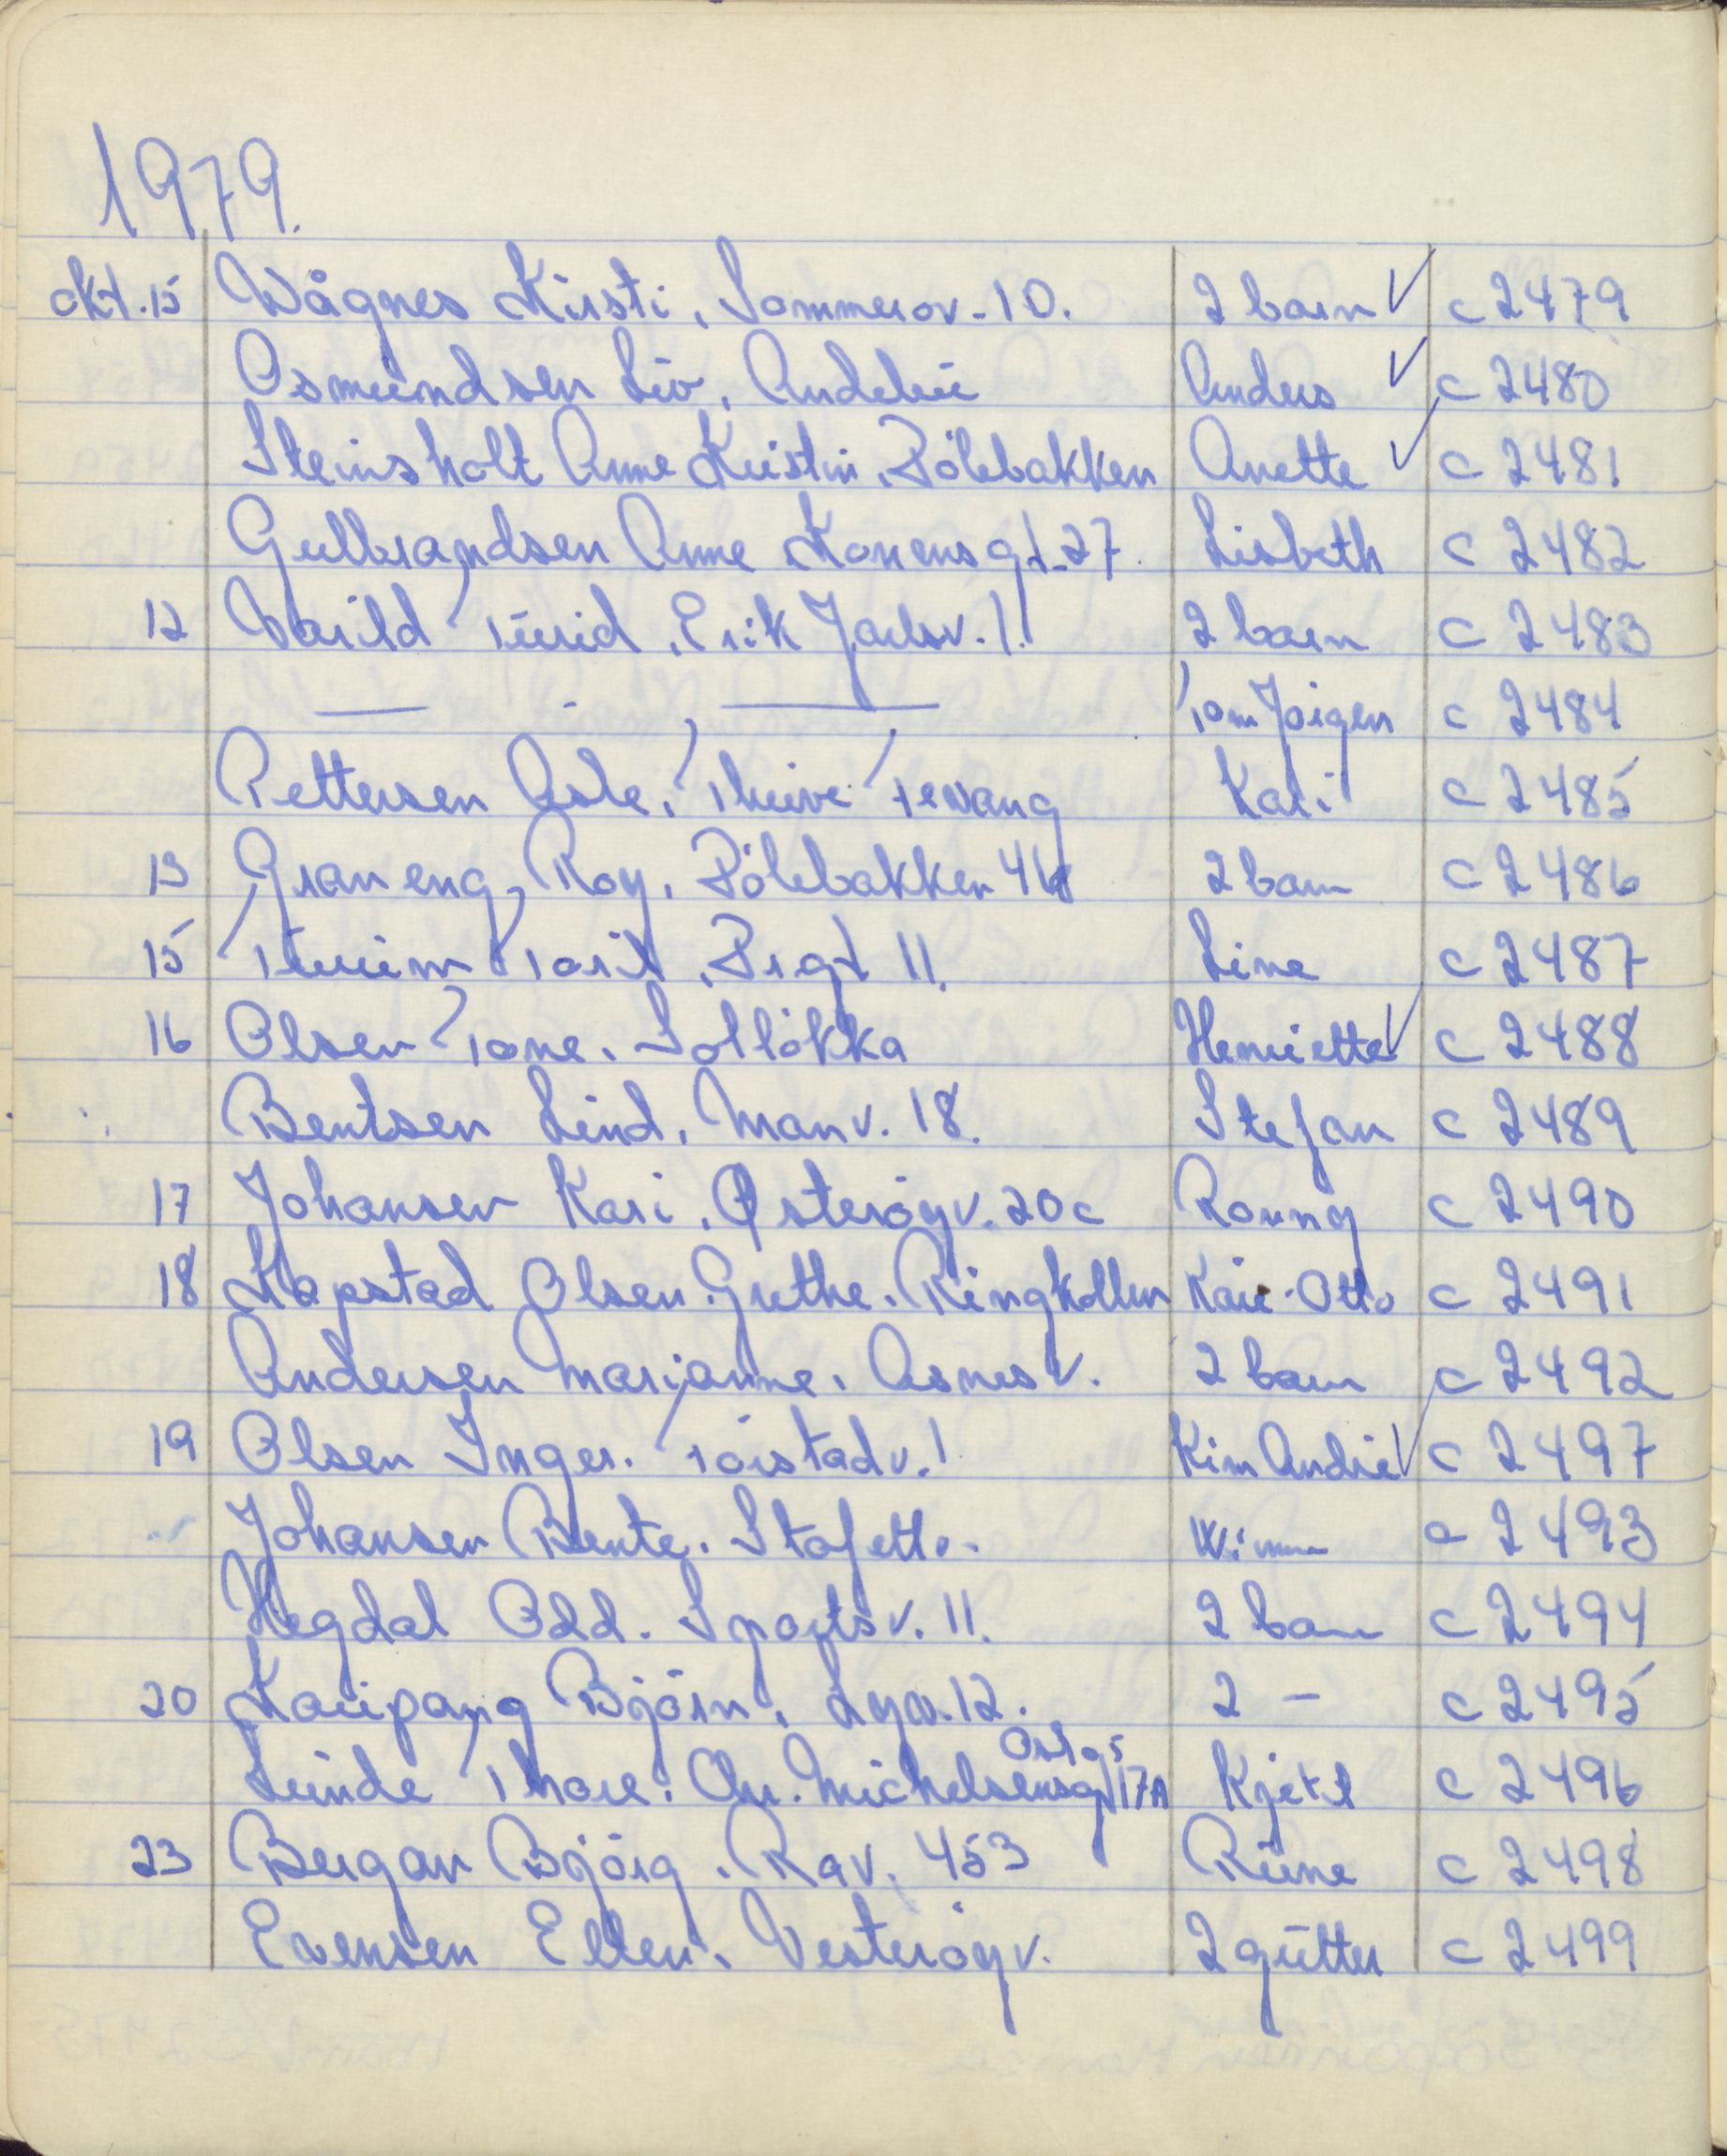 1979.
okt. 15 Wågnes Kirsti, Sommerov. 10. 2 barn ✓ c 2479
Asmundsen Liv, Andebu Anders ✓ c 2480
Steinsholt Anne Kristin, Pölebakken Anette ✓ c 2481
Gulbrandsen Anne Konensgt. 27. Lisbeth c 2482
12 Varild Turid, Erik Jarlsv. 1. 2 barn c 2483
— - — Tom Jörgen c 2484
Pettersen Asle, Thuve Tevang Kari c 2485
13 Graneng Roy, Pölebakken 2 barn c 2486
15 Toril, Prgt 11. Line c 2487
16 Olsen Tone, Solløkka Henriette ✓ c 2488
Bentsen Lind, Manv. 18. Stefan c 2489
17 Johansen Kari, Østeröyv. 20c Ronny c 2490
18 Kopstad Olsen Grethe, Ringkollen Kai-Otto c 2491
Andersen Marianne, Asnesv. 2 barn c 2492
19 Olsen Inger, Torstadv. 1 Kim Andre ✓ c 2497
Johansen Bente, Stafettv. c 2493
Hegdal Odd. Sportsv. 11. 2 barn c 2494
20 Kaupang Björn, Lyv. 12. 2 - c 2495
Oslo 5
Lunde Thore, Chr. Michelsensgt 17A Kjetil c 2496
23 Bergan Björg, Rav. 453 Rune c 2498
Evensen Ellen, Vesteröyv. 2 gutter c 2499